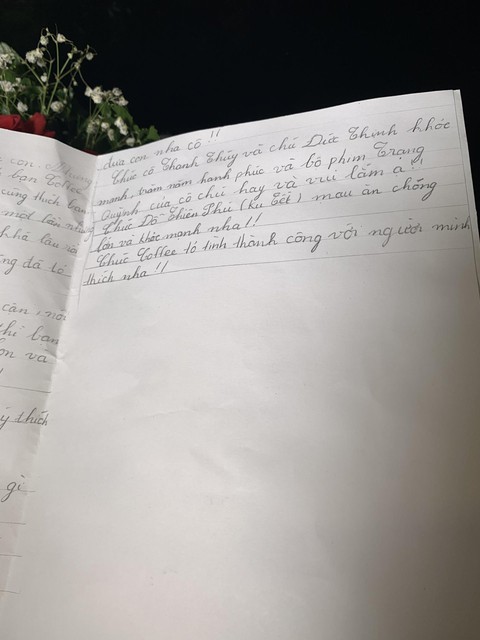 đưa con nha cô !!
Chúc cô Thanh Thúy và chú Đức Thịnh khỏe
mạnh, trăm năm hạnh phúc và bộ phim Trạng
Quỳnh của cô chú hay và vui lắm ạ !!
Chúc Đỗ Thiên Phú (ku Tết) mau ăn chóng
lớn và khỏe mạnh nha !!
Chúc Coffee tỏ tình thành công với người mình
thích nha !!
bạn Coffee
cũng thích bạn
một lời
khá lâu rồi
đã tỏ
căn, nơi
thì bạn
và
ý thích
gì